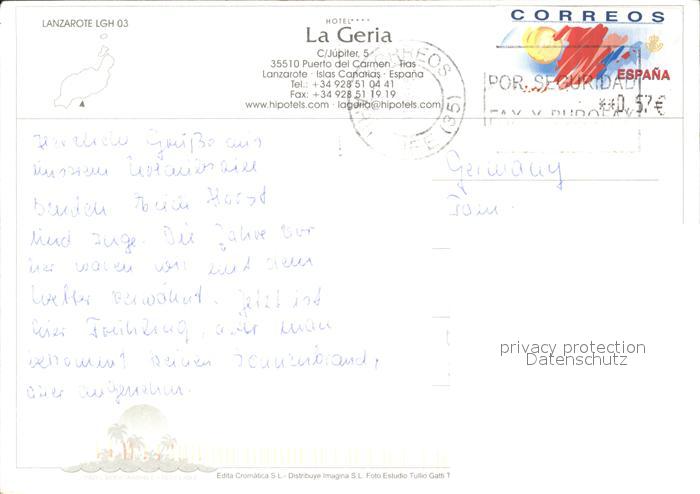 LANZAROTE LGH 03
HOTEL****
La Geria
C/Júpiter, 5
35510 Puerto del Carmen · Tías
Lanzarote · Islas Canarias · España
Tel.: +34 928 51 04 41
Fax: +34 928 51 19 19
www.hipotels.com · lageria@hipotels.com
CORREOS
ESPAÑA
POR SEGURIDAD
**0,57€
FAX Y BUROFAX
CORREOS
(35)
Herzliche Grüße aus
unserem
senden Horst
und Inge. Die Jahre vor
her waren wir mit dem
Wetter verwöhnt. Jetzt ist
hier Frühling, aber man
bekommt keinen Sonnenbrand,
aber angenehm.
Germany
Fam.
privacy protection
Datenschutz
Edita Cromática S.L.- Distribuye Imagina S.L. Foto Estudio Tullio Gatti